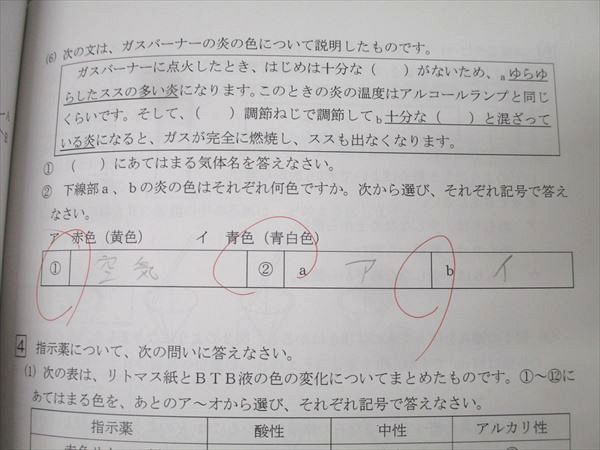 (6) 次の文は、ガスバーナーの炎の色について説明したものです。
ガスバーナーに点火したとき、はじめは十分な（　）がないため、aゆらゆ
らしたススの多い炎になります。このときの炎の温度はアルコールランプと同じ
くらいです。そして、（　）調節ねじで調節してb十分な（　）と混ざって
いる炎になると、ガスが完全に燃焼し、ススも出なくなります。
① （　）にあてはまる気体名を答えなさい。
② 下線部a、bの炎の色はそれぞれ何色ですか。次から選び、それぞれ記号で答え
なさい。
ア 赤色（黄色） イ 青色（青白色）
① 空気 ② a ア b イ
4 指示薬について、次の問いに答えなさい。
(1) 次の表は、リトマス紙とＢＴＢ液の色の変化についてまとめたものです。①～⑫に
あてはまる色を、あとのア～オから選び、それぞれ記号で答えなさい。
指示薬 酸性 中性 アルカリ性